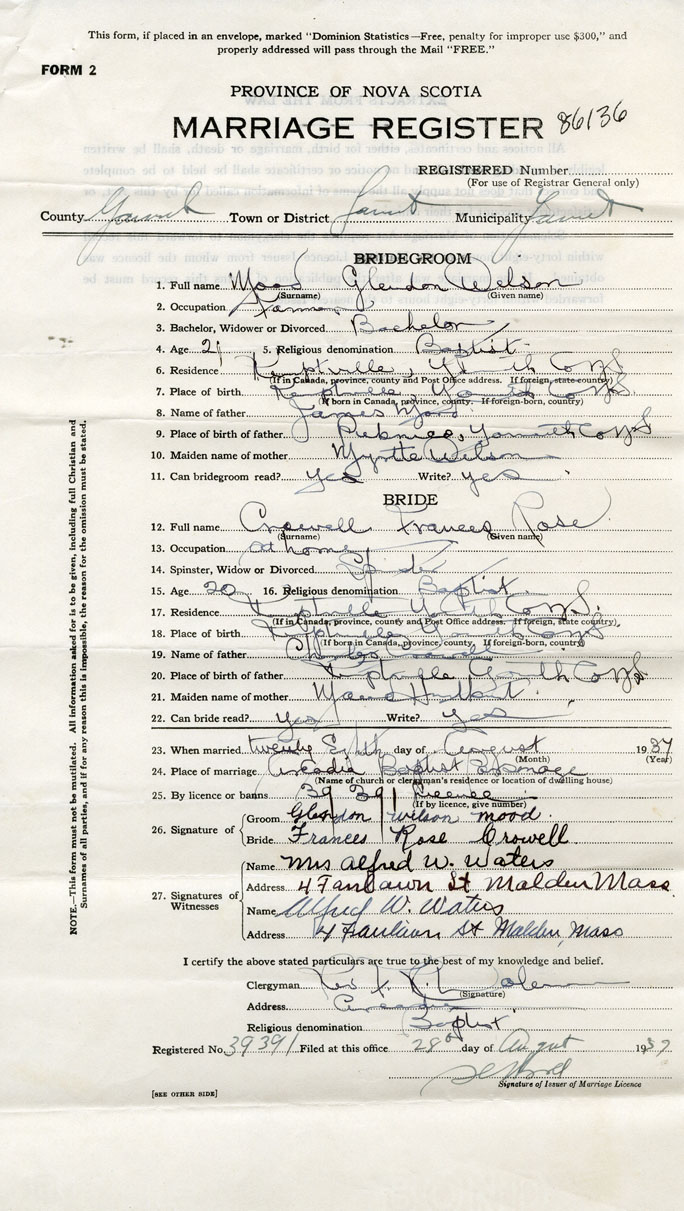 This form, if placed in an envelope, marked "Dominion Statistics—Free, penalty for improper use $300," and
properly addressed will pass through the Mail "FREE."
FORM 2
PROVINCE OF NOVA SCOTIA
MARRIAGE REGISTER 86136
REGISTERED Number
(For use of Registrar General only)
County Yarmouth Town or District Yarmouth Municipality Yarmouth
BRIDEGROOM
1. Full name Mood Glendon Wilson
(Surname) (Given name)
2. Occupation Farmer
3. Bachelor, Widower or Divorced Bachelor
4. Age 21 5. Religious denomination Baptist
6. Residence Kemptville, Yarmouth Co NS
(If in Canada, province, county and Post Office address. If foreign, state country)
7. Place of birth Kemptville, Yarmouth Co NS
(If born in Canada, province, county. If foreign-born, country)
8. Name of father James Mood
9. Place of birth of father Pubnico, Yarmouth Co NS
10. Maiden name of mother Myrtle Wilson
11. Can bridegroom read? yes Write? yes
BRIDE
12. Full name Crowell Frances Rose
(Surname) (Given name)
13. Occupation at home
14. Spinster, Widow or Divorced Spinster
15. Age 20 16. Religious denomination Baptist
17. Residence Kemptville Yarmouth Co NS.
(If in Canada, province, county and Post Office address. If foreign, state country)
18. Place of birth Kemptville Yarmouth Co NS
(If born in Canada, province, county. If foreign-born, country)
19. Name of father Crowell
20. Place of birth of father Kemptville Yarmouth Co NS
21. Maiden name of mother
22. Can bride read? Yes Write? Yes
23. When married twenty day of August 1937
(Month) (Year)
24. Place of marriage Arcadia Baptist Parsonage
(Name of church or clergyman's residence or location of dwelling house)
25. By licence or banns 39391 Licence
(If by licence, give number)
26. Signature of
Groom Glendon Wilson Mood
Bride Frances Rose Crowell
27. Signatures of Witnesses
Name Mrs Alfred W. Waters
Address 4 St Malden Mass.
Name Alfred W. Waters
Address 4 St Malden, Mass
I certify the above stated particulars are true to the best of my knowledge and belief.
Clergyman Rev
(Signature)
Address Arcadia
Religious denomination Baptist
Registered No. 39391 Filed at this office 28 day of August 1937
Signature of Issuer of Marriage Licence
[SEE OTHER SIDE]
NOTE.—This form must not be mutilated. All information asked for is to be given, including full Christian and
Surnames of all parties, and if for any reason this is impossible, the reason for the omission must be stated.